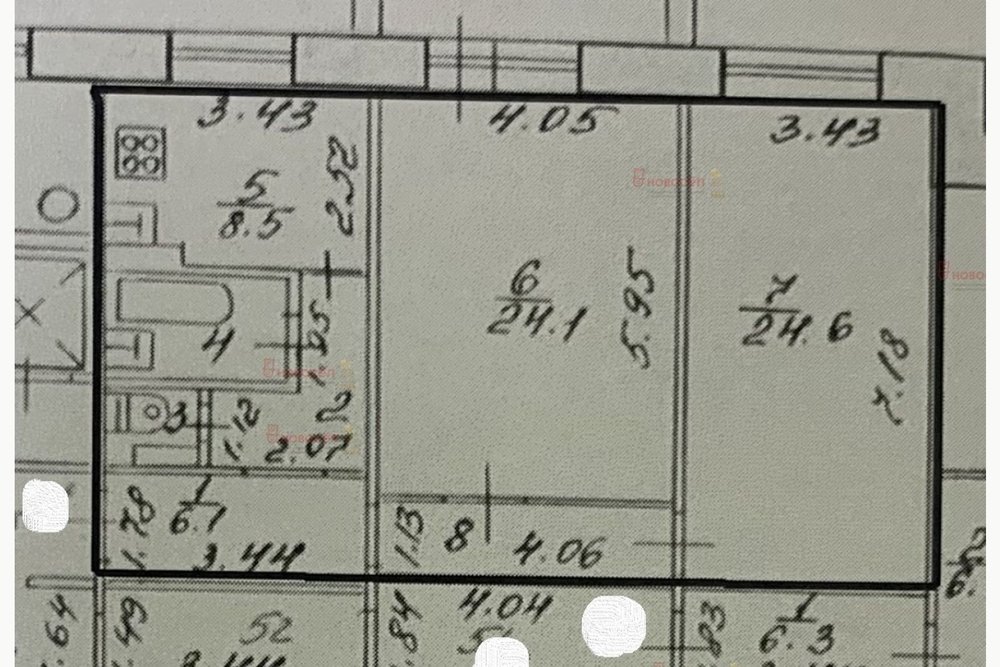 3.43
4.05
3.43
5
8.5
2.52
НОВОСЕЛ
6
24.1
5.95
7
24.6
7.18
4
НОВОСЕЛ
3
1.12
2
2.07
НОВОСЕЛ
1
6.1
1.78
3.44
1.13
8
4.06
.64
.49
52
.84
4.04
.83
1
6.3